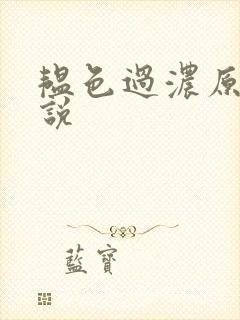 韞色過濃原
說
藍寶